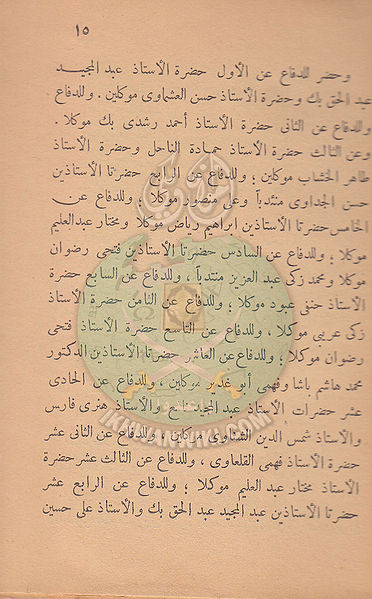 ١٥
وحضر للدفاع عن الأول حضرة الأستاذ عبد المجيد
عبد الحق بك وحضرة الأستاذ حسن العشماوى موكلين . وللدفاع
وللدفاع عن الثانى حضرة الأستاذ أحمد رشدى بك موكلا .
وعن الثالث حضرة الأستاذ حمادة الناحل وحضرة الأستاذ
طاهر الخشاب موكلين ؛ وللدفاع عن الرابع حضرتا الأستاذين
حسن الجداوى منتدبا وعلى منصور موكلا ؛ وللدفاع عن
الخامس حضرتا الأستاذين ابراهيم رياض موكلا ومختار عبد العليم
موكلا ؛ وللدفاع عن السادس حضرتا الأستاذين فتحى رضوان
موكلا ومحمد زكى عبد العزيز منتدبا ، وللدفاع عن السابع حضرة
الأستاذ حنفى عبود موكلا ؛ وللدفاع عن الثامن حضرة الأستاذ
زكى عريبى موكلا ؛ وللدفاع عن التاسع حضرة الأستاذ فتحى
رضوان موكلا ؛ وللدفاع عن العاشر حضرتا الأستاذين الدكتور
محمد هاشم باشا وفهمى أبو غدير موكلين ، وللدفاع عن الحادى
عشر حضرات الأستاذ عبد المجيد نافع والأستاذ هنرى فارس
والأستاذ شمس الدين الشناوى موكلين ، وللدفاع عن الثانى عشر
حضرة الأستاذ فهمى القلعاوى ، وللدفاع عن الثالث عشر حضرة
الأستاذ مختار عبد العليم موكلا ؛ وللدفاع عن الرابع عشر
حضرتا الأستاذين عبد المجيد عبد الحق بك والأستاذ على حسين
IKHWANWIKI.COM